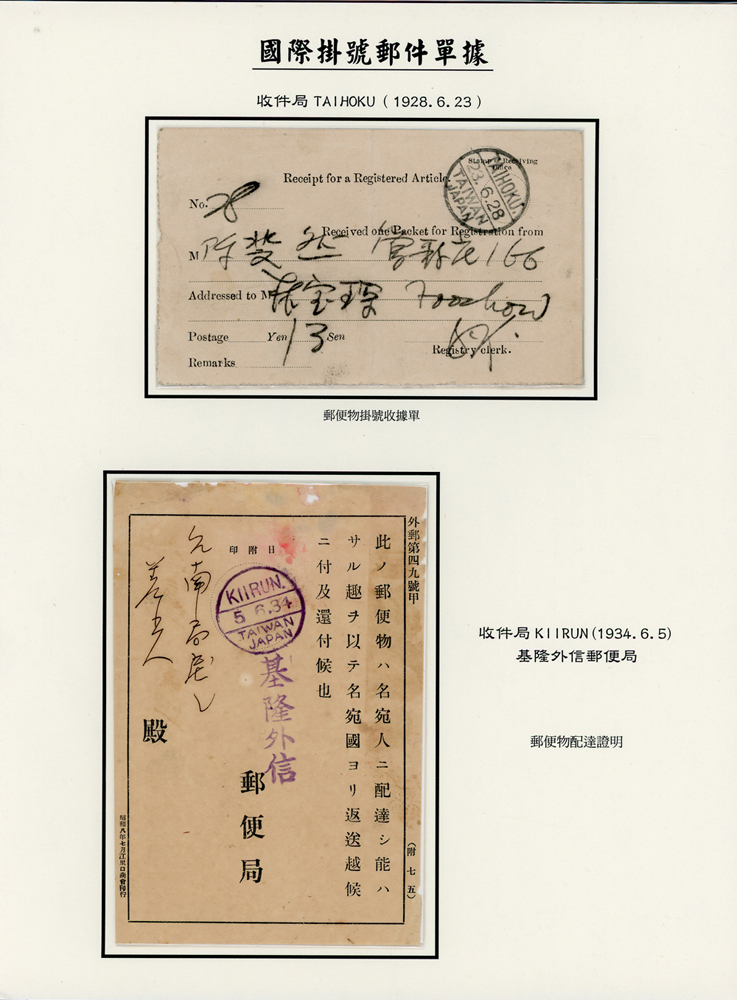 國際掛號郵件單據
收件局 TAIHOKU ( 1928.6.23 )
Stamp Receiving
Office
Receipt for a Registered Article.
TAIHOKU.
23.6.28
TAIWAN
JAPAN
No. 28
Received one Packet for Registration from
M 陳 166
Addressed to M 宝琛 Foochow
Postage Yen 13 Sen
Registry clerk.
Remarks
郵便物掛號收據單
外郵第四九號甲
此ノ郵便物ハ名宛人ニ配達シ能ハ
サル趣ヲ以テ名宛國ヨリ返送越候
ニ付及還付候也
(附七五)
日附印
KIIRUN.
5.6.34
TAIWAN
JAPAN
基隆外信
郵便局
殿
昭和八年七月江里口商會印行
收件局 KIIRUN(1934.6.5)
基隆外信郵便局
郵便物配達證明